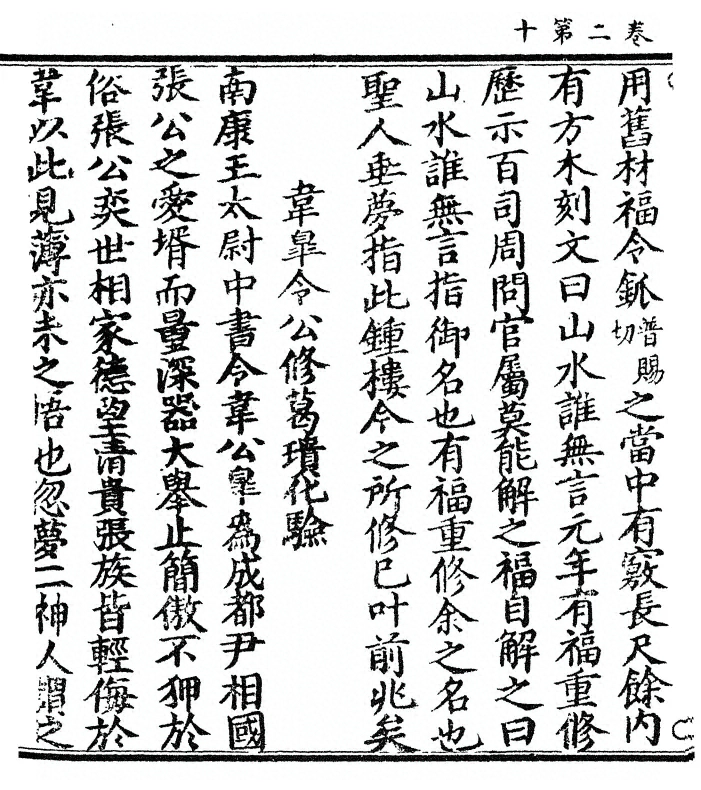 卷二第十
用舊材福令釽普賜切之當中有竅長尺餘内
有方木刻文曰山水誰無言元年有福重修
歷示百司周問官屬莫能解之福自解之曰
山水誰無言指御名也有福重修余之名也
聖人垂夢指此鍾樓令之所修已叶前兆矣
韋臯令公修葛璝化驗
南康王太尉中書令韋公臯為成都尹相國
張公之愛壻而量深器大舉止簡傲不狎於
俗張公奕世相家德望清貴張族皆輕侮於
韋以此見薄亦未之悟也忽夢二神人謂之